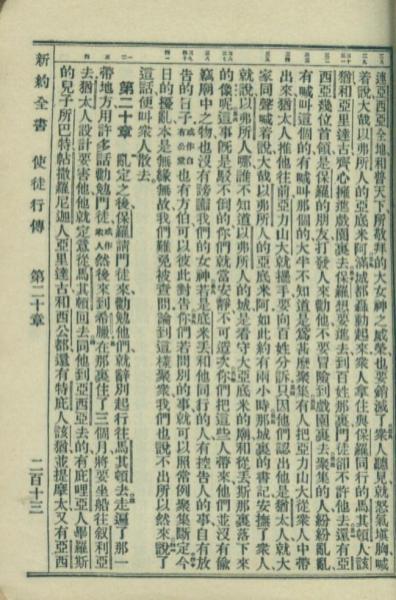 連亞西亞全地和普天下所敬拜的大女神之威榮也要銷滅了衆人聽見就怒氣塡胸喊
着說大哉以弗所人的亞底米阿滿城都轟動起來衆人拿住與保羅同行的馬其頓人該
猶和亞里達古齊心擁進戲園裏去保羅想要進去到百姓那裏門徒卻不許他去還有亞
西亞幾位首領是保羅的朋友打發人來勸他不要冒險到戲園裏去聚集的人紛紛亂亂
有喊叫這個的有喊叫那個的大半不知道是爲甚麼聚集有人把亞力山大從衆人中帶
出來猶太人推他往前亞力山大就擺手要向百姓分訴只因他們認出他是猶太人就大
家同聲喊着說大哉以弗所人的亞底米阿如此約有兩小時那城裏的書記安撫了衆人
就說以弗所人哪誰不知道以弗所人的城是看守大亞底米的廟和從丟斯那裏落下來
的像呢這事旣是駁不倒的你們就當安靜不可造次你們把這些人帶來他們並沒有偷
竊廟中之物也沒有謗讟我們的女神若是底米丟和他同行的人有控告人的事自有放
告的日子或作自有公堂也有方伯可以彼此對告你們若問別的事就可以照常例聚集斷定今
日的擾亂本是無緣無故我們難免被查問論到這樣聚衆我們也說不出所以然來說了
這話便叫衆人散去
第二十章 亂定之後保羅請門徒來勸勉他們就辭別起行往馬其頓去走遍了那一
帶地方用許多話勸勉門徒或作衆人然後來到希臘在那裏住了三個月將要坐船往叙利亞
去猶太人設計要害他他就定意從馬其頓回去同他到亞西亞去的有庇哩亞人畢羅斯
的兒子所巴特帖撒羅尼迦人亞里達古和西公都還有特庇人該猶並提摩太又有亞西
新約全書 使徒行傳 第二十章 二百十三